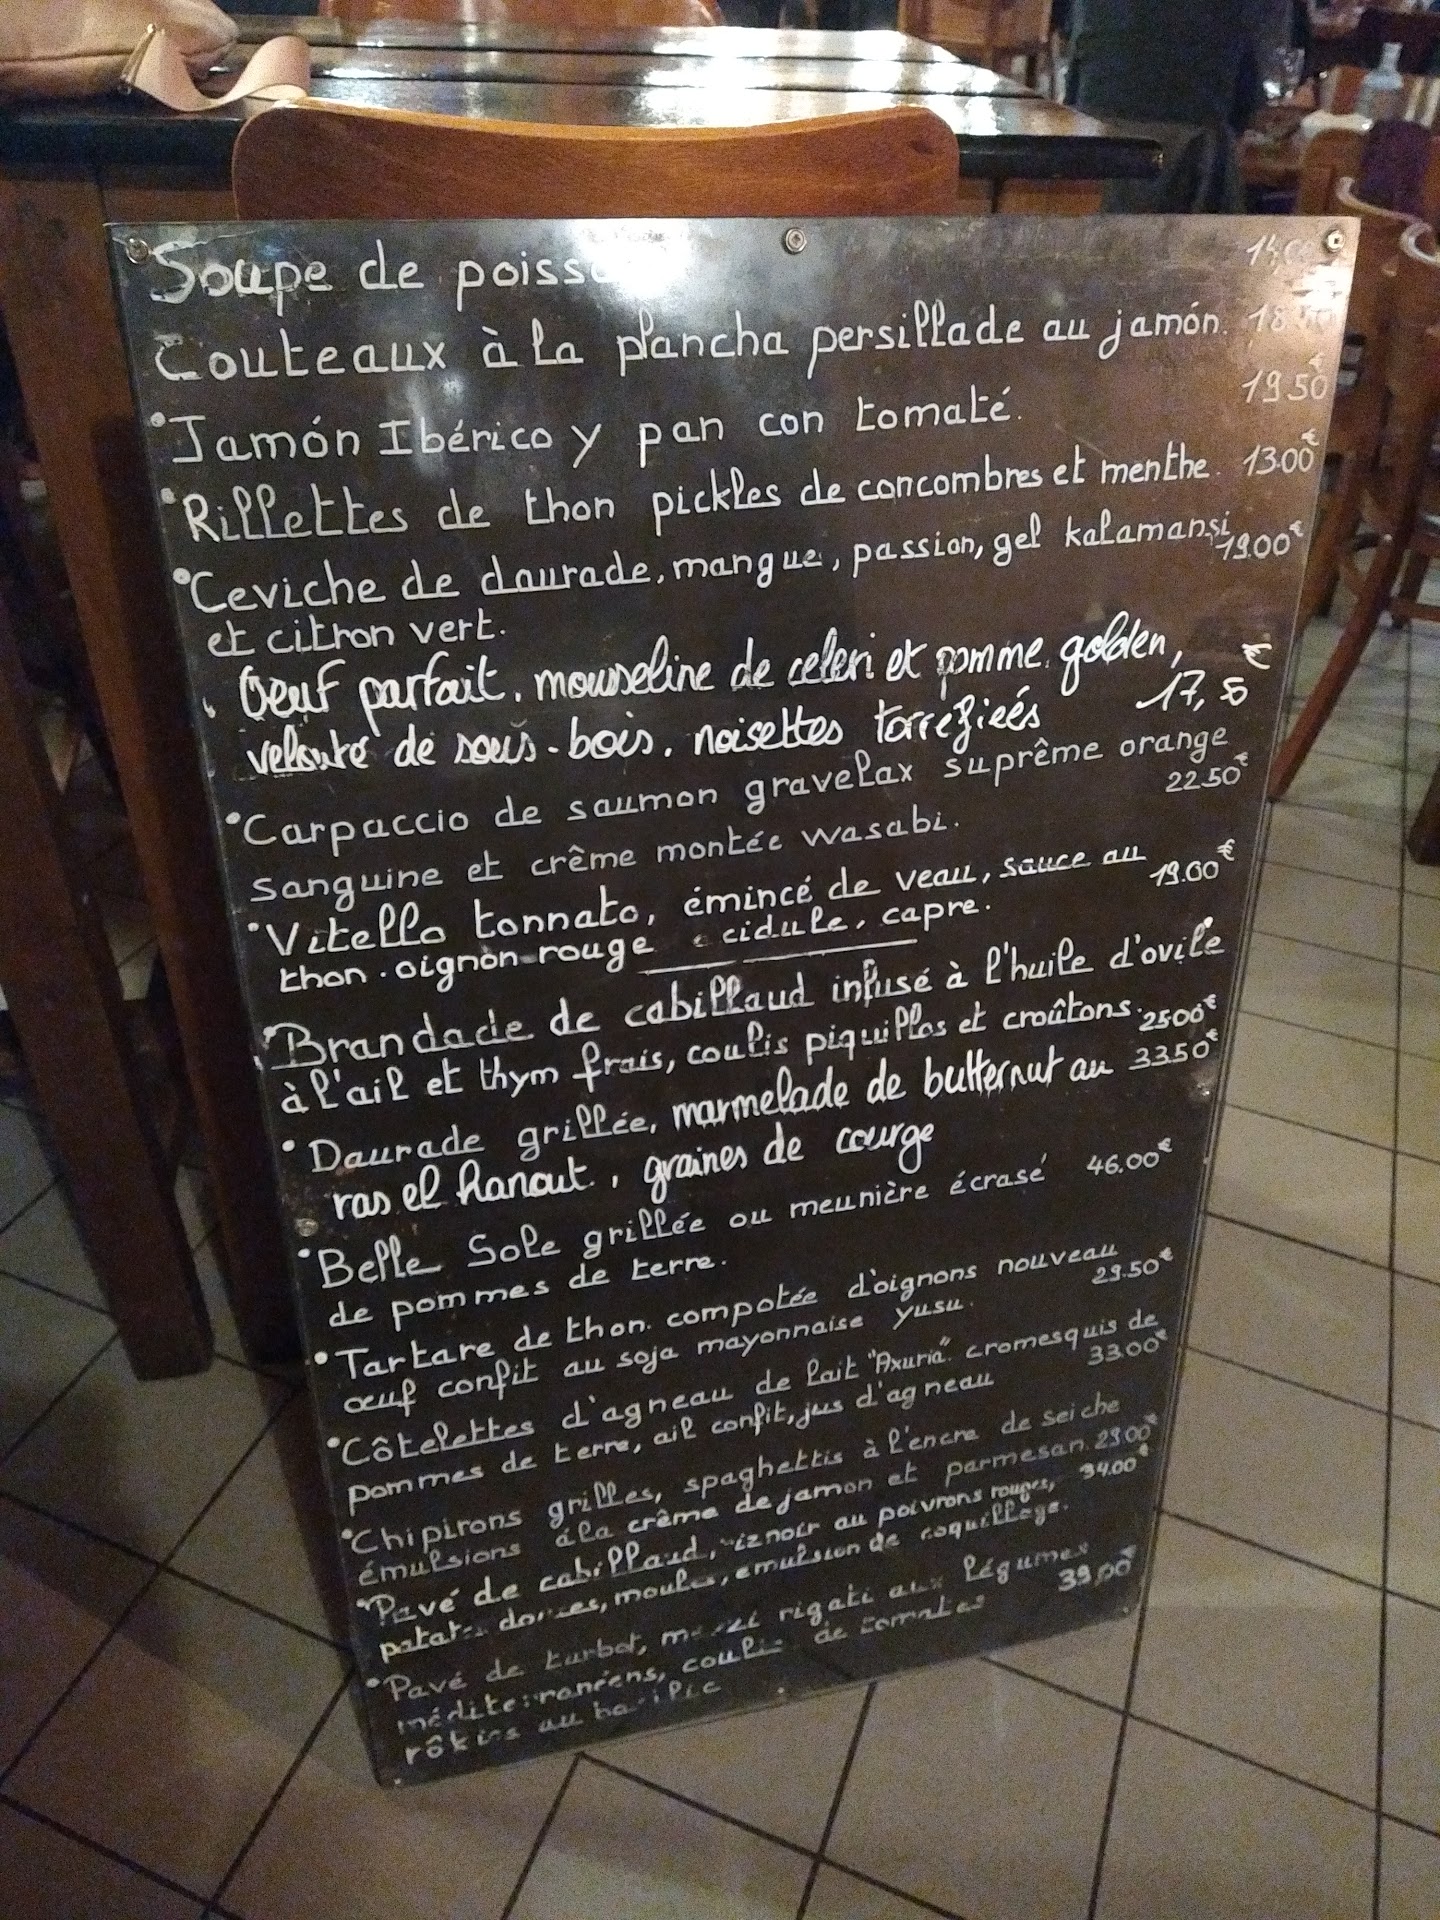 Soupe de 14,00
Couteaux à la plancha persillade au jamón. 18
19 50€
Jamón Ibérico y pan con tomaté.
Rillettes de thon pickles de concombres et menthe. 13.00€
Ceviche de daurade, mangue, passion, gel kalamansi 19.00€
et citron vert.
Oeuf parfait, mouseline de celeri et pomme golden, €
velouté de sous-bois, noisettes torrefieés 17,50
Carpaccio de saumon gravelax suprême orange
22.50€
sanguine et crême montée wasabi.
Vitello tonnato, émincé de veau, sauce au 19.00€
thon. oignon rouge cidule, capre.
Brandade de cabillaud infusé à l'huile d'ovile
à l'ail et thym frais, coulis piquillos et croûtons. 25.00€
Daurade grillée, marmelade de butternut au 33.50€
ras el hanout, graines de courge
Belle Sole grillée ou meunière écrasé 46.00€
de pommes de terre.
Tartare de thon. compotée d'oignons nouveau
29.50€
œuf confit au soja mayonnaise yusu.
Côtelettes d'agneau de lait "Axuria". cromesquis de
33.00€
pommes de terre, ail confit, jus d'agneau
Chipirons grilles, spaghettis à l'encre de seiche
émulsions á la crême de jamon et parmesan. 29.00€
Pavé de cabillaud, riz noir au poivrons rouges, 34.00€
douces, moules, emulsion de coquillage.
Pavé de turbot, rigati aux légumes
39,00€
méditerranéens, coulis de tomates
au basilic